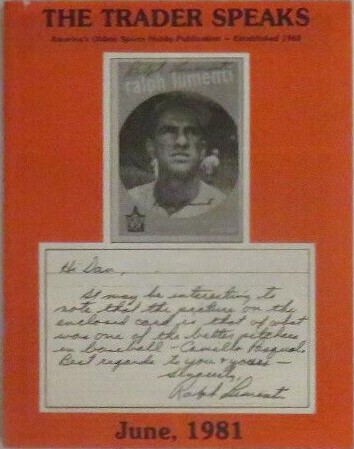 THE TRADER SPEAKS
America's Oldest Sports Hobby Publication — Established 1968
Ralph Lumenti
ralph lumenti
Hi Dan,
It may be interesting to
note that the picture on the
enclosed card is that of what
was one of the better pitchers
in baseball - Camillo Pasqual.
Best regards to you & yours —
Sincerely,
Ralph Lumenti
June, 1981